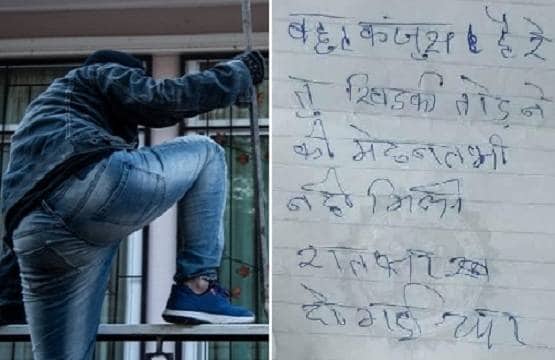 बहुत कंजुस है रे
तु खिडकी तोड़ ने
की मेहनत भी
नही मिली
रात
हो गई